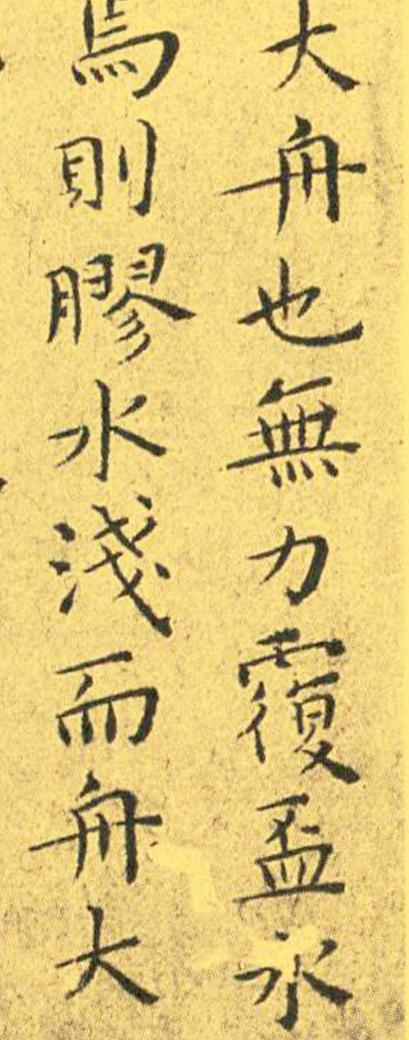 大舟也無力覆盃水
焉則膠水淺而舟大